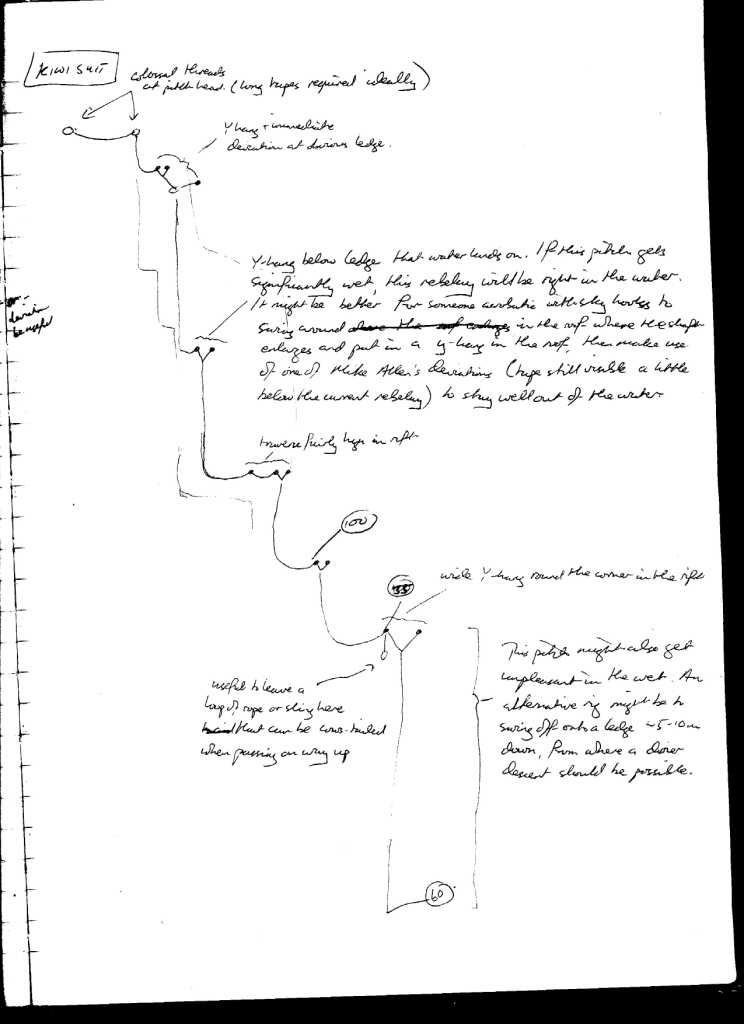 KIWI SUIT
colossal threads
at pitch head. (long tapes required ideally)
Y hang + immediate
deviation at obvious ledge.
Y-hang below ledge that water lands on. If this pitch gets
significantly wet, this rebelay will be right in the water.
It might be better for someone acrobatic with sky hooks to
swing around above the roof enlarges in the roof where the shaft
enlarges and put in a y-hang in the roof, then make use
of one of Mike Allen's deviations (tape still visible a little
below the current rebelay) to stay well out of the water
traverse fairly high in rift
100
wide Y-hang round the corner in the rift
55
This pitch might also get
unpleasant in the wet. An
alternative rig might be to
swing off onto a ledge ~5-10m
down, from where a drier
descent should be possible.
useful to leave a
loop of rope or sling here
that can be cows-tailed
when passing on way up
60